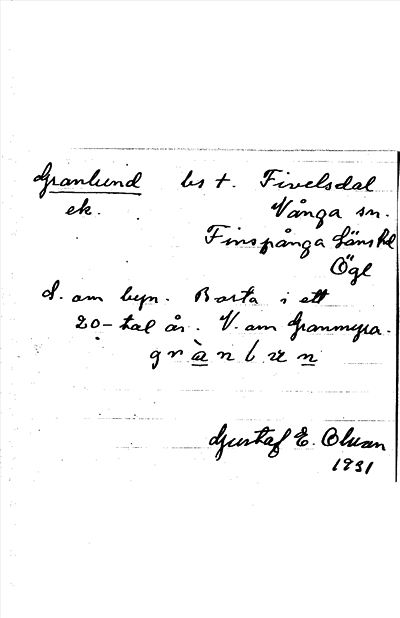 Granlund bs t. Fivelsdal
ek. Vånga sn.
Finspånga läns hd
Ögl
S. om byn. Borta i ett
20-tal år. V. om Granmyra.
Gustaf E. Olsson
1931